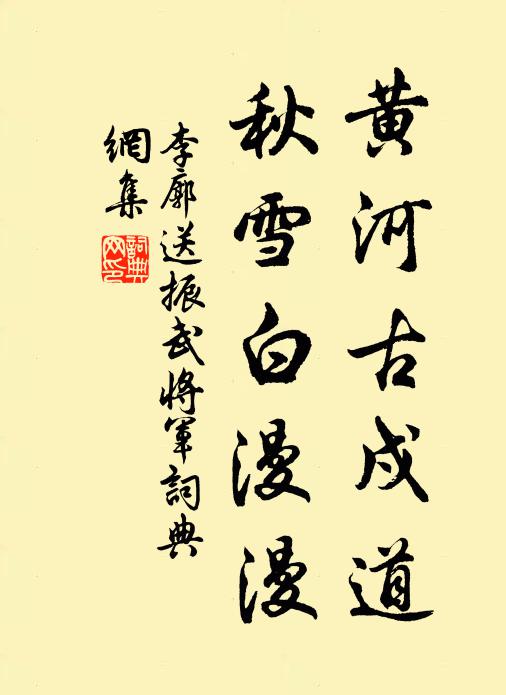 黄河古戍道
秋雪白漫漫
李廓送振武將軍詞典
網集
詞典
网印